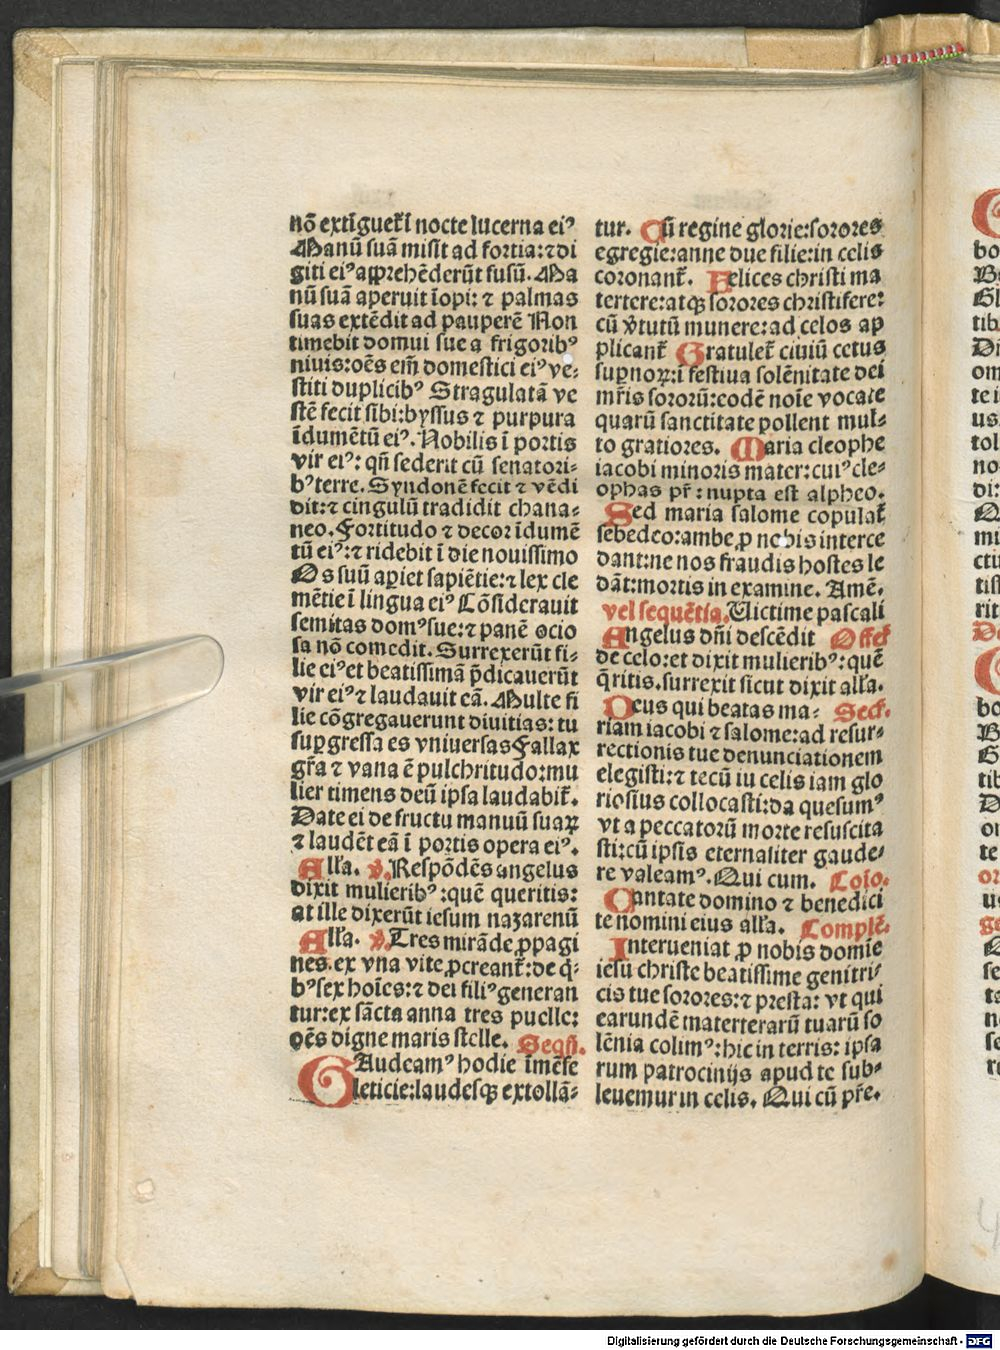 nō extīguet᷑ ī nocte lucerna eiꝰ
Manū suā misit ad fortia: ⁊ di
giti eiꝰ apprehēderūt fusū. Ma
nū suā aperuit īopi: ⁊ palmas
suas extēdit ad pauperē Non
timebit domui sue a frigoribꝰ
niuis: oēs em̄ domestici eiꝰ ve⸗
stiti duplicibꝰ Stragulatā ve
stē fecit sibi: byssus ⁊ purpura
īdumētū eiꝰ. Nobilis ī portis
vir eiꝰ: qn̄ sederit cū senatori⸗
bꝰ terre. Syndonē fecit ⁊ vēdi
dit: ⁊ cingulū tradidit chana⸗
neo. Fortitudo ⁊ decor īdumē
tū eiꝰ: ⁊ ridebit ī die nouissimo
Os suū apiet sapiētie: ⁊ lex cle
mētie ī lingua eiꝰ Cōsiderauit
semitas domꝰ sue: ⁊ panē ocio
sa nō comedit. Surrexerūt fi⸗
lie eiꝰ et beatissimā p̄dicauerūt
vir eiꝰ ⁊ laudauit eā. Multe fi
lie cōgregauerunt diuitias: tu
supgressa es vniuersas Fallax
gr̄a ⁊ vana ē pulchritudo: mu
lier timens deū ipsa laudabit᷑.
Date ei de fructu manuū suaꝝ
⁊ laudēt eā ī portis opera eiꝰ.
Alla. ℣. Respōdēs angelus
dixit mulieribꝰ: quē queritis:
at ille dixerūt iesum nazarenū
Alla. ℣. Tres mirāde ꝓpagi
nes. ex vna vite ꝓcreant᷑: de q̄⸗
bꝰ sex hoīes: ⁊ dei filiꝰ generan
tur: ex sācta anna tres puelle:
oēs digne maris stelle. Seqn̄.
GAudeamꝰ hodie īmēse
leticie: laudesqꝫ extollā⸗
tur. Cū regine glorie: sorores
egregie: anne due filie: in celis
coronant᷑. Felices christi ma
tertere: atqꝫ sorores christifere:
cū v̓tutū munere: ad celos ap
plicant᷑ Gratulet᷑ ciuiū cetus
supnoꝝ: ī festiua solēnitate dei
mr̄is sororū: eodē noīe vocate
quarū sanctitate pollent mul⸗
to gratiores. Maria cleophe
iacobi minoris mater: cuiꝰ cle⸗
ophas pr̄: nupta est alpheo.
Sed maria salome copulat᷑
sebedeo: ambe ꝓ nobis interce
dant: ne nos fraudis hostes le
dāt: mortis in examine. Amē.
vel sequētia. Uictime pascali
Angelus dn̄i descēdit Offet᷑
de celo: et dixit mulieribꝰ: quē
q̄ritis. surrexit sicut dixit alla.
Deus qui beatas ma⸗ Secr̄.
riam iacobi ⁊ salome: ad resur⸗
rectionis tue denunciationem
elegisti: ⁊ tecū iu celis iam glo
riosius collocasti: da quesumꝰ
vt a peccatorū morte resuscita
sti: cū ipsis eternaliter gaude⸗
re valeamꝰ. Qui cum. Coīo.
Cantate domino ⁊ benedici
te nomini eius alla. Complē.
Interueniat ꝓ nobis domīe
iesu christe beatissime genitri⸗
cis tue sorores: ⁊ presta: vt qui
earundē materterarū tuarū so
lēnia colimꝰ: hic in terris: ipsa
rum patrocinijs apud te sub⸗
leuemur in celis. Qui cū pr̄e.
Digitalisierung gefördert durch die Deutsche Forschungsgemeinschaft - DFG